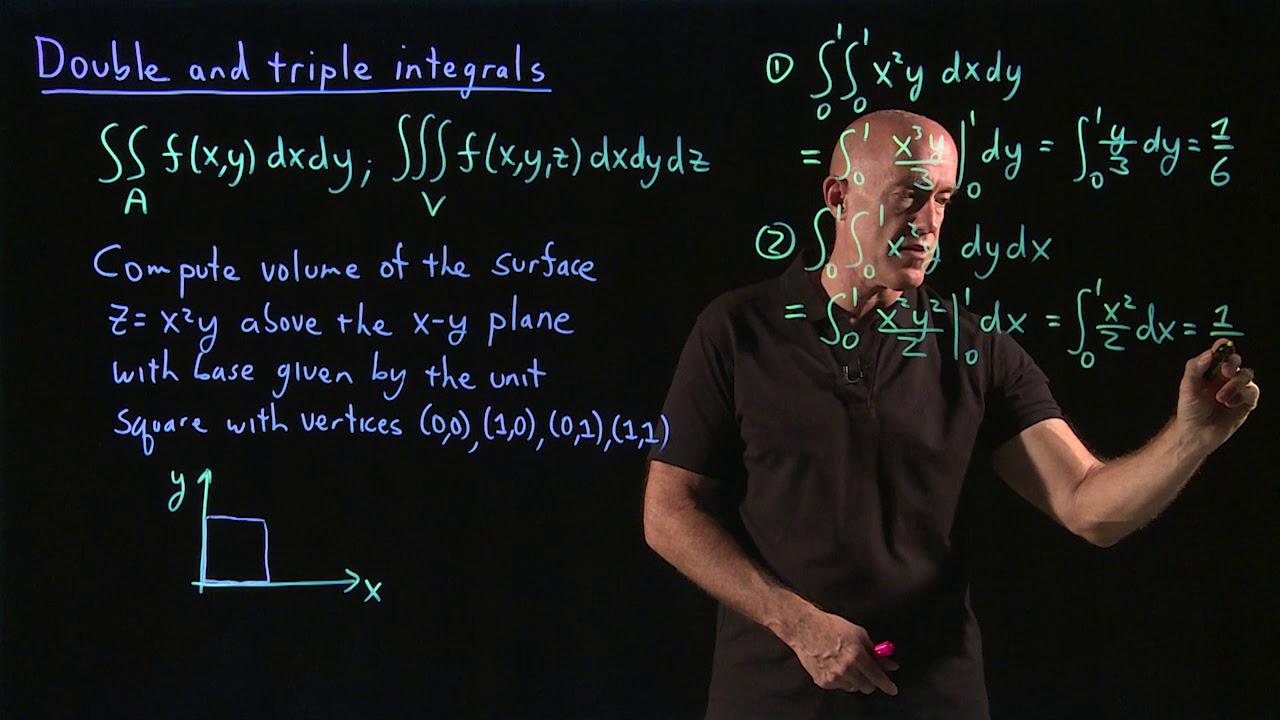 Double and triple integrals
∬_A f(x,y) dxdy; ∭_V f(x,y,z) dxdydz
Compute volume of the surface
z = x²y above the x-y plane
with base given by the unit
square with vertices (0,0), (1,0), (0,1), (1,1)
y
x
① ∫₀¹∫₀¹ x²y dxdy
= ∫₀¹ x³y/3 |₀¹ dy = ∫₀¹ y/3 dy = 1/6
② ∫₀¹∫₀¹ x²y dydx
= ∫₀¹ x²y²/2 |₀¹ dx = ∫₀¹ x²/2 dx = 1/